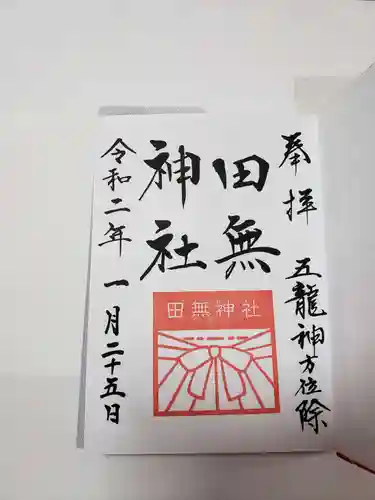 奉拝 五龍神方位除
田無
神社
田無神社
令和二年一月二十五日